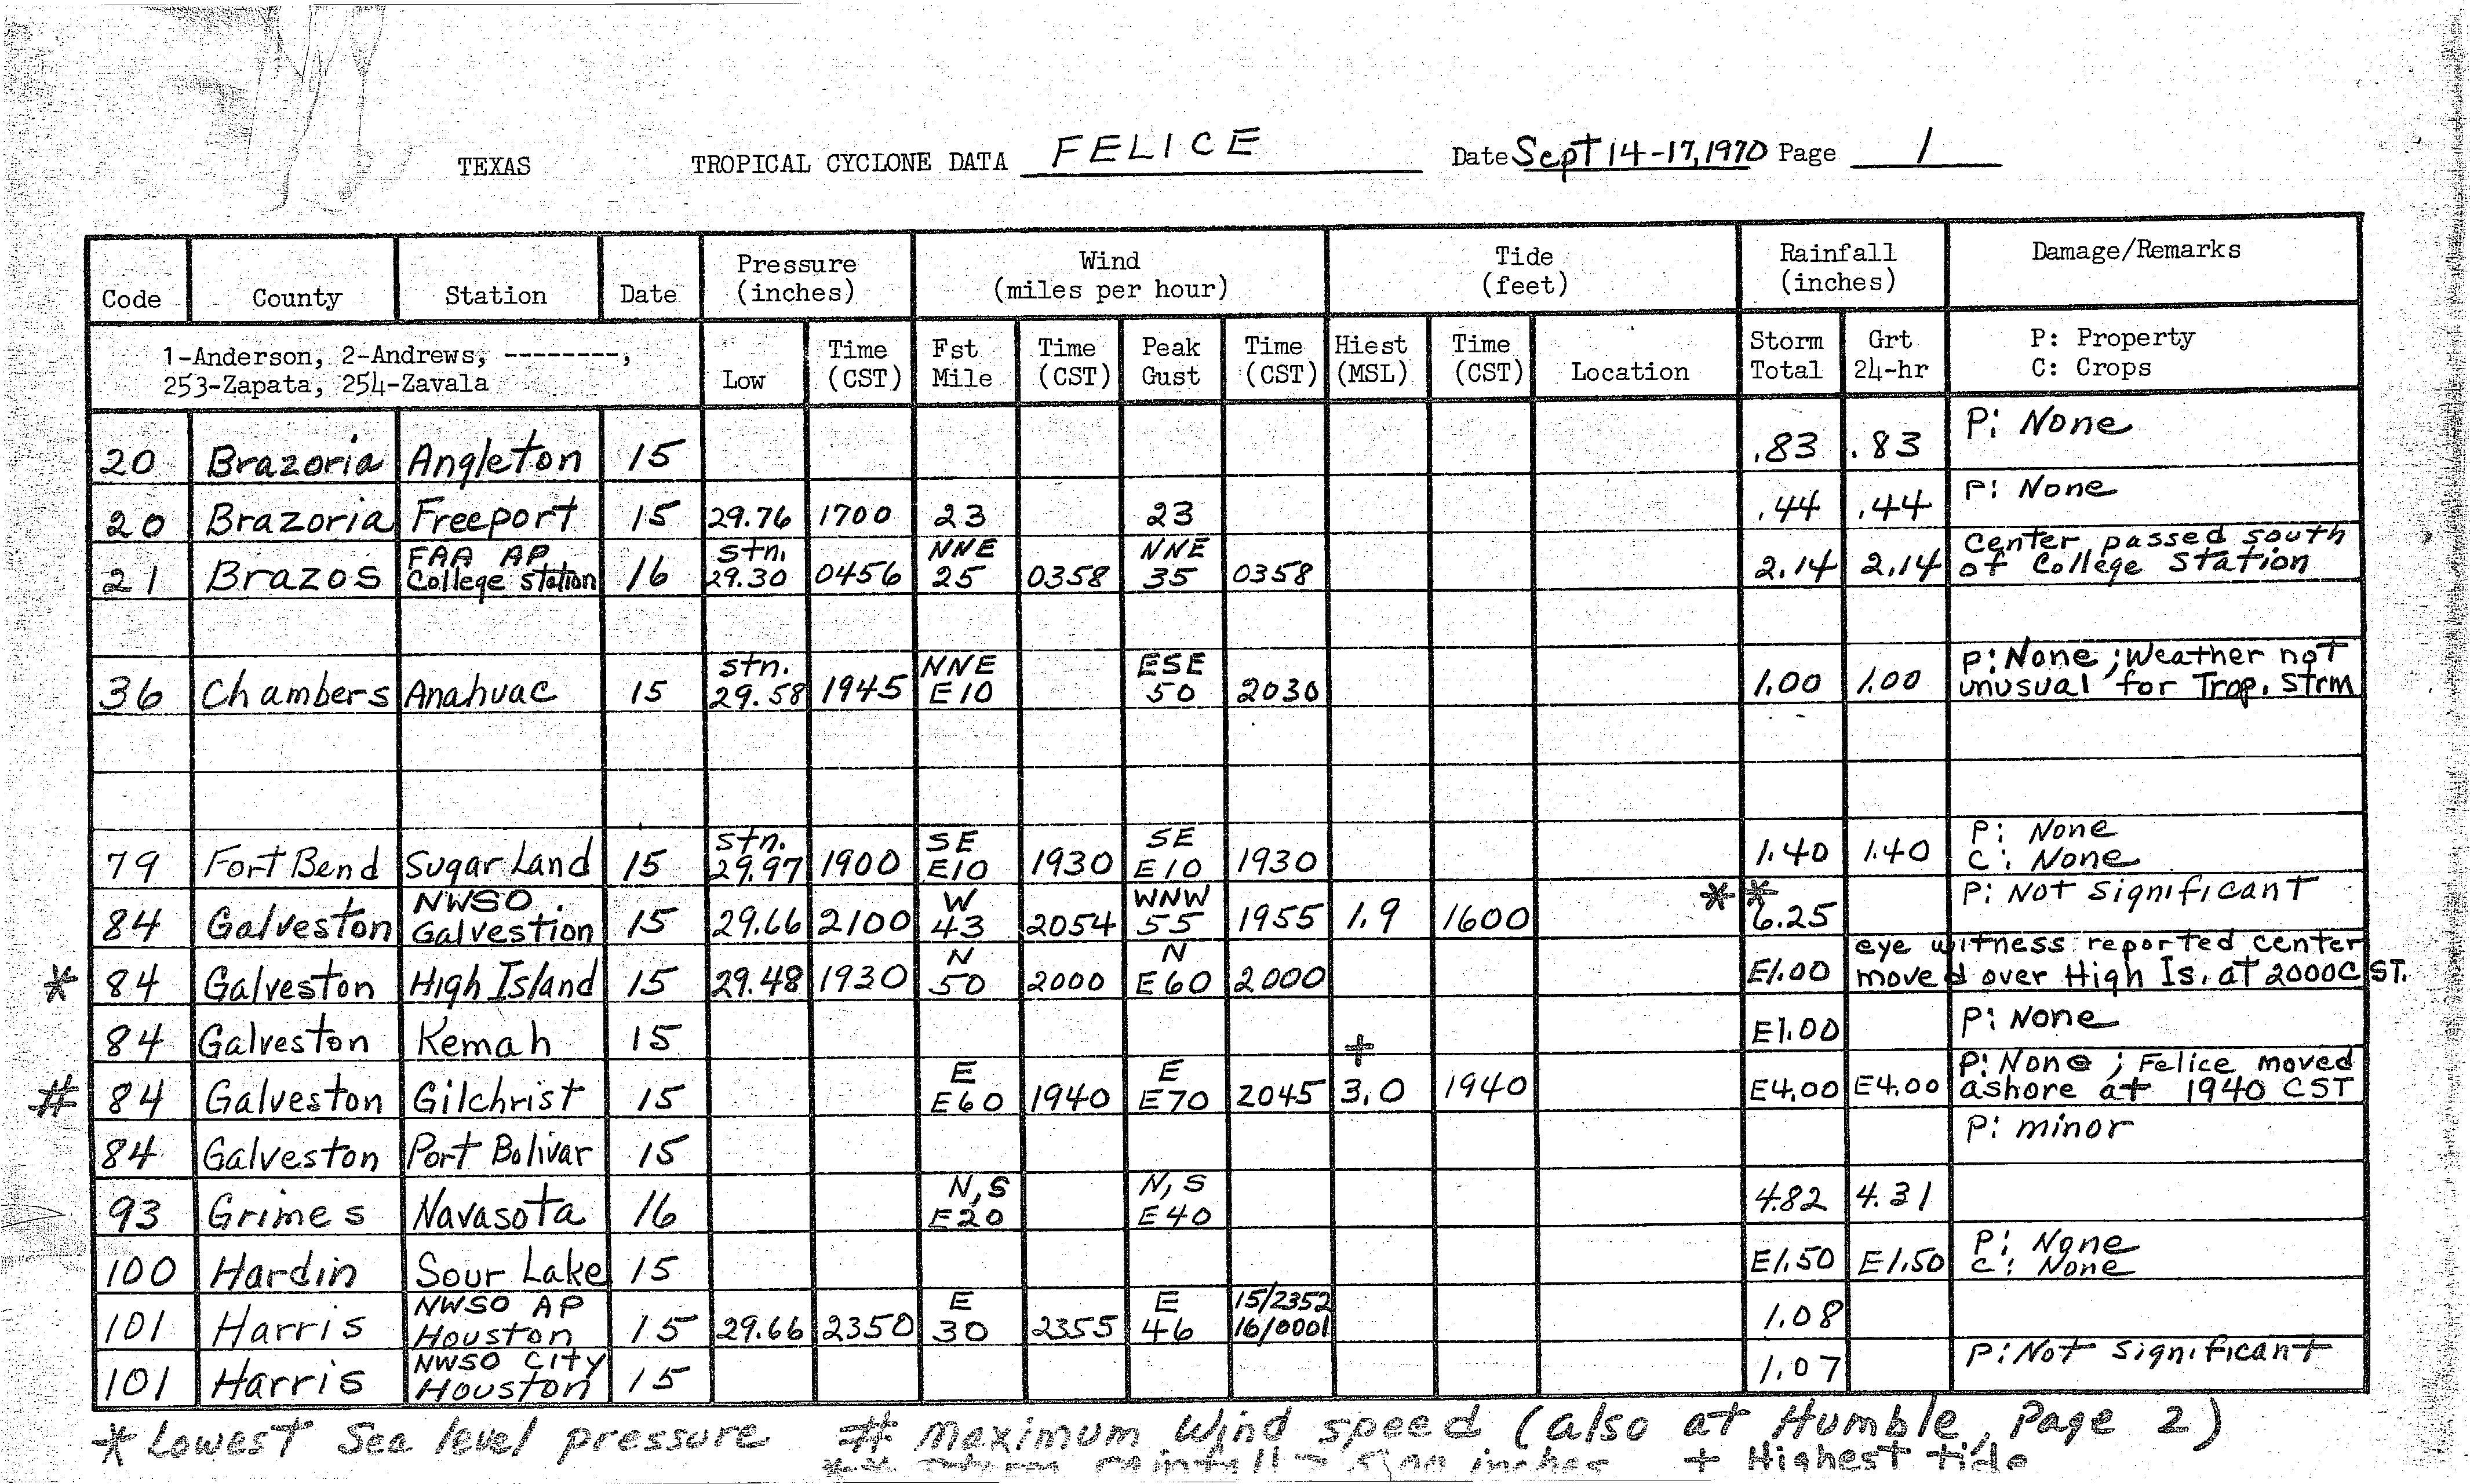 TEXAS TROPICAL CYCLONE DATA FELICE Date Sept 14-17, 1970 Page 1
Code County Station Date Pressure (inches) Wind (miles per hour) Tide (feet) Rainfall (inches) Damage/Remarks
1-Anderson, 2-Andrews, --------, 253-Zapata, 254-Zavala Low Time (CST) Fst Mile Time (CST) Peak Gust Time (CST) Hiest (MSL) Time (CST) Location Storm Total Grt 24-hr P: Property C: Crops
20 Brazoria Angleton 15 .83 .83 P: None
20 Brazoria Freeport 15 29.76 1700 23 23 .44 .44 P: None
21 Brazos FAA AP College Station 16 stn. 29.30 0456 NNE 25 0358 NNE 35 0358 2.14 2.14 Center passed south of College Station
36 Chambers Anahuac 15 stn. 29.58 1945 NNE E10 ESE 50 2030 1.00 1.00 P: None; Weather not unusual for Trop. Strm
79 Fort Bend Sugar Land 15 stn. 29.97 1900 SE E10 1930 SE E10 1930 1.40 1.40 P: None C: None
84 Galveston NWSO Galvestion 15 29.66 2100 W 43 2054 WNW 55 1955 1.9 1600 ** 6.25 P: Not Significant
* 84 Galveston High Island 15 29.48 1930 N 50 2000 N E60 2000 E1.00 eye witness reported center moved over High Is. at 2000 CST.
84 Galveston Kemah 15 E1.00 P: None
# 84 Galveston Gilchrist 15 E E60 1940 E E70 2045 + 3.0 1940 E4.00 E4.00 P: None; Felice moved ashore at 1940 CST
84 Galveston Port Bolivar 15 P: minor
93 Grimes Navasota 16 N,S E20 N,S E40 4.82 4.31
100 Hardin Sour Lake 15 E1.50 E1.50 P: None C: None
101 Harris NWSO AP Houston 15 29.66 2350 E 30 2355 E 46 15/2352 16/0001 1.08
101 Harris NWSO City Houston 15 1.07 P: Not Significant
* Lowest Sea level pressure # Maximum Wind speed (also at Humble, Page 2)
** rainfall inches + Highest tide